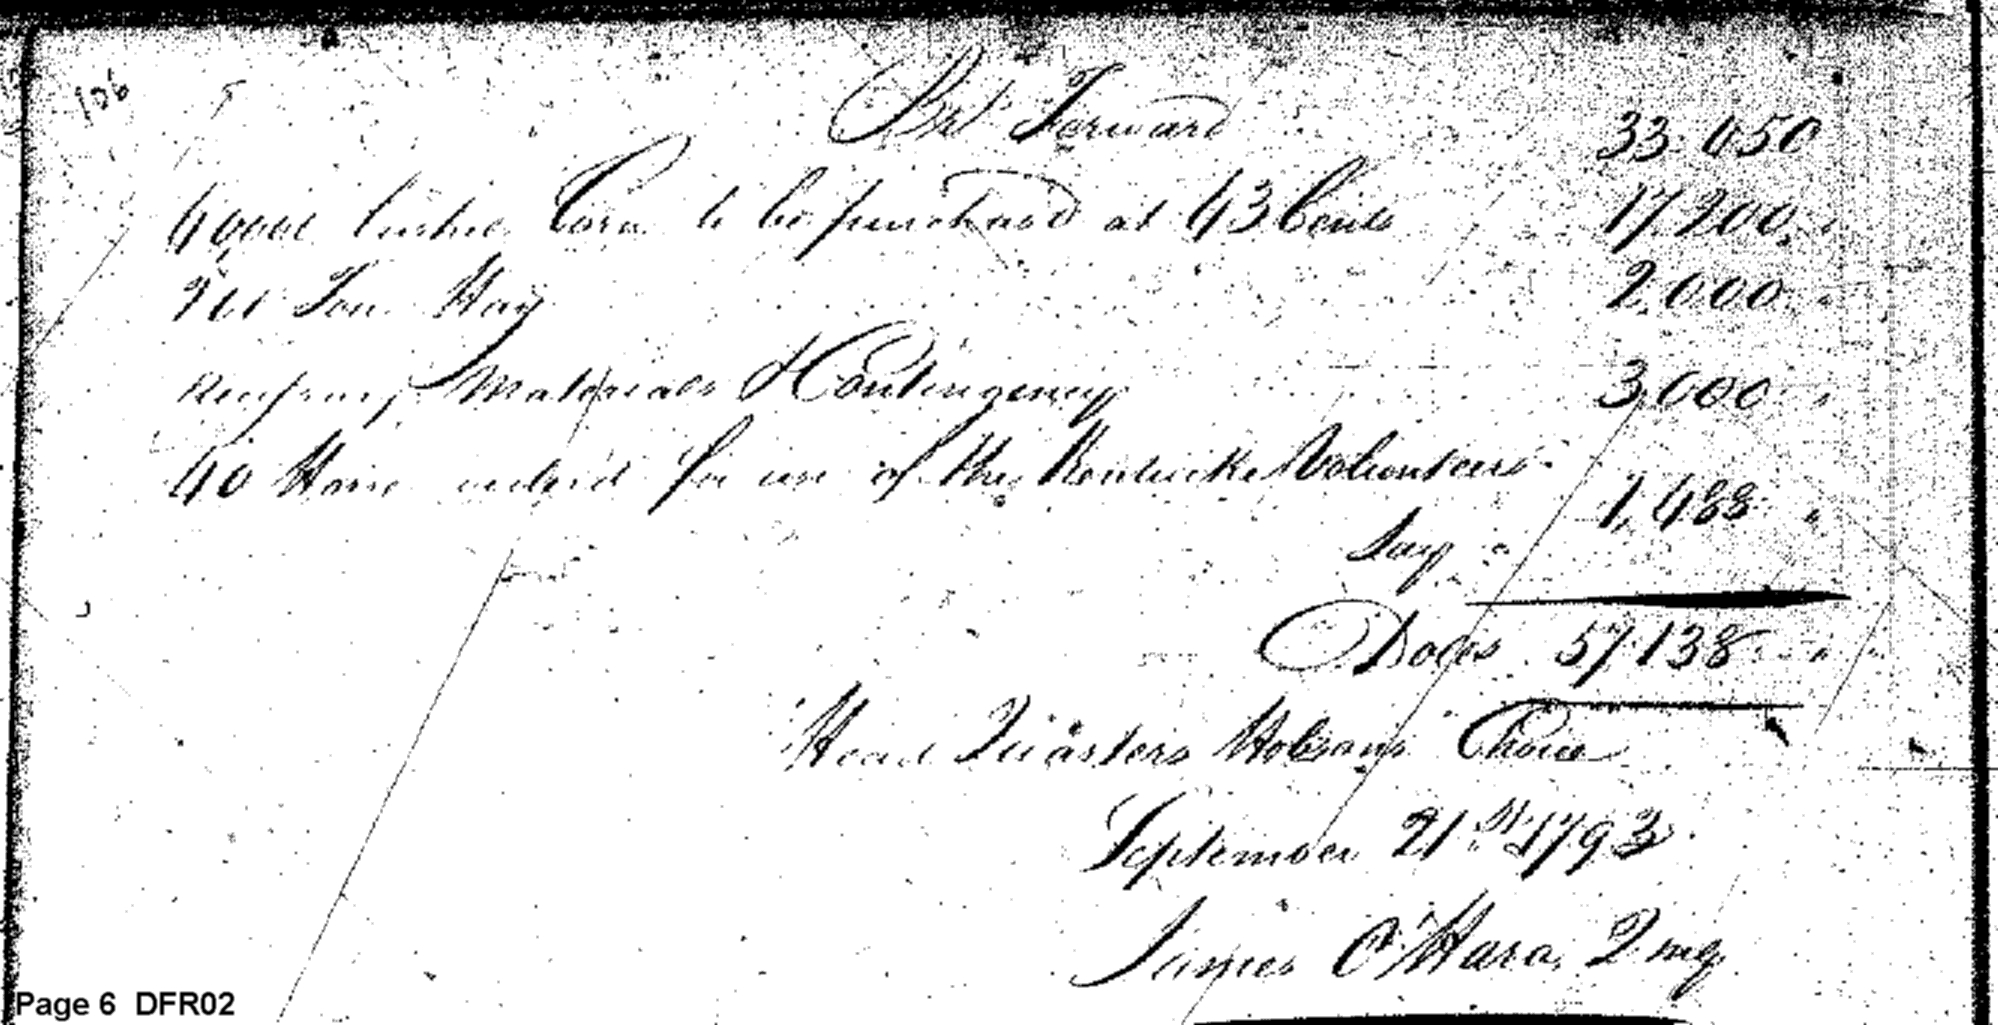 106
Brt Forward 33.450
40000 bushs Corn to be purchased at 43 Cents 17,200
200 Ton Hay 2,000
Materials & Contingency 3,000
40 Horse for use of the Kentucke Volunteers
Say 1,488
Dolls 57.138
Head Quarters Hobsons Choice
September 21st 1793
James O'Hara, Qmg
Page 6 DFR02